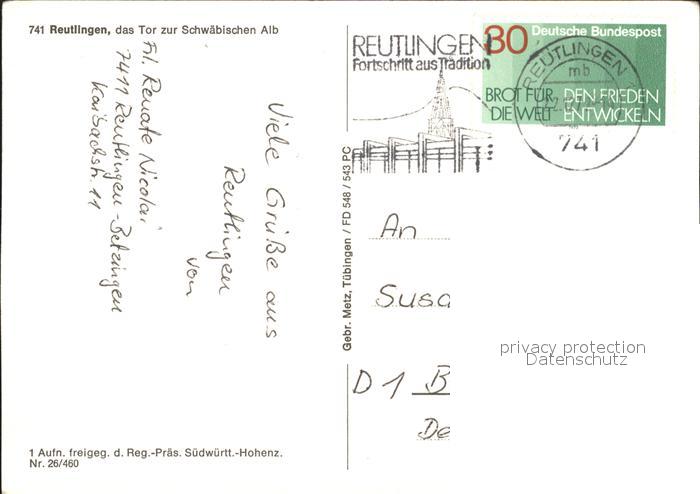 741 Reutlingen, das Tor zur Schwäbischen Alb
Viele Grüße aus
Reutlingen
von
Frl. Renate Nicolai
7411 Reutlingen-Betzingen
11
1 Aufn. freigeg. d. Reg.-Präs. Südwürtt.-Hohenz.
Nr. 26/460
Gebr. Metz, Tübingen / FD 548 / 543 PC
REUTLINGEN
Fortschritt aus Tradition
30 Deutsche Bundespost
BROT FÜR DEN FRIEDEN
DIE WELT ENTWICKELN
REUTLINGEN
mb
741
An
Susa
D 1 B
De
privacy protection
Datenschutz